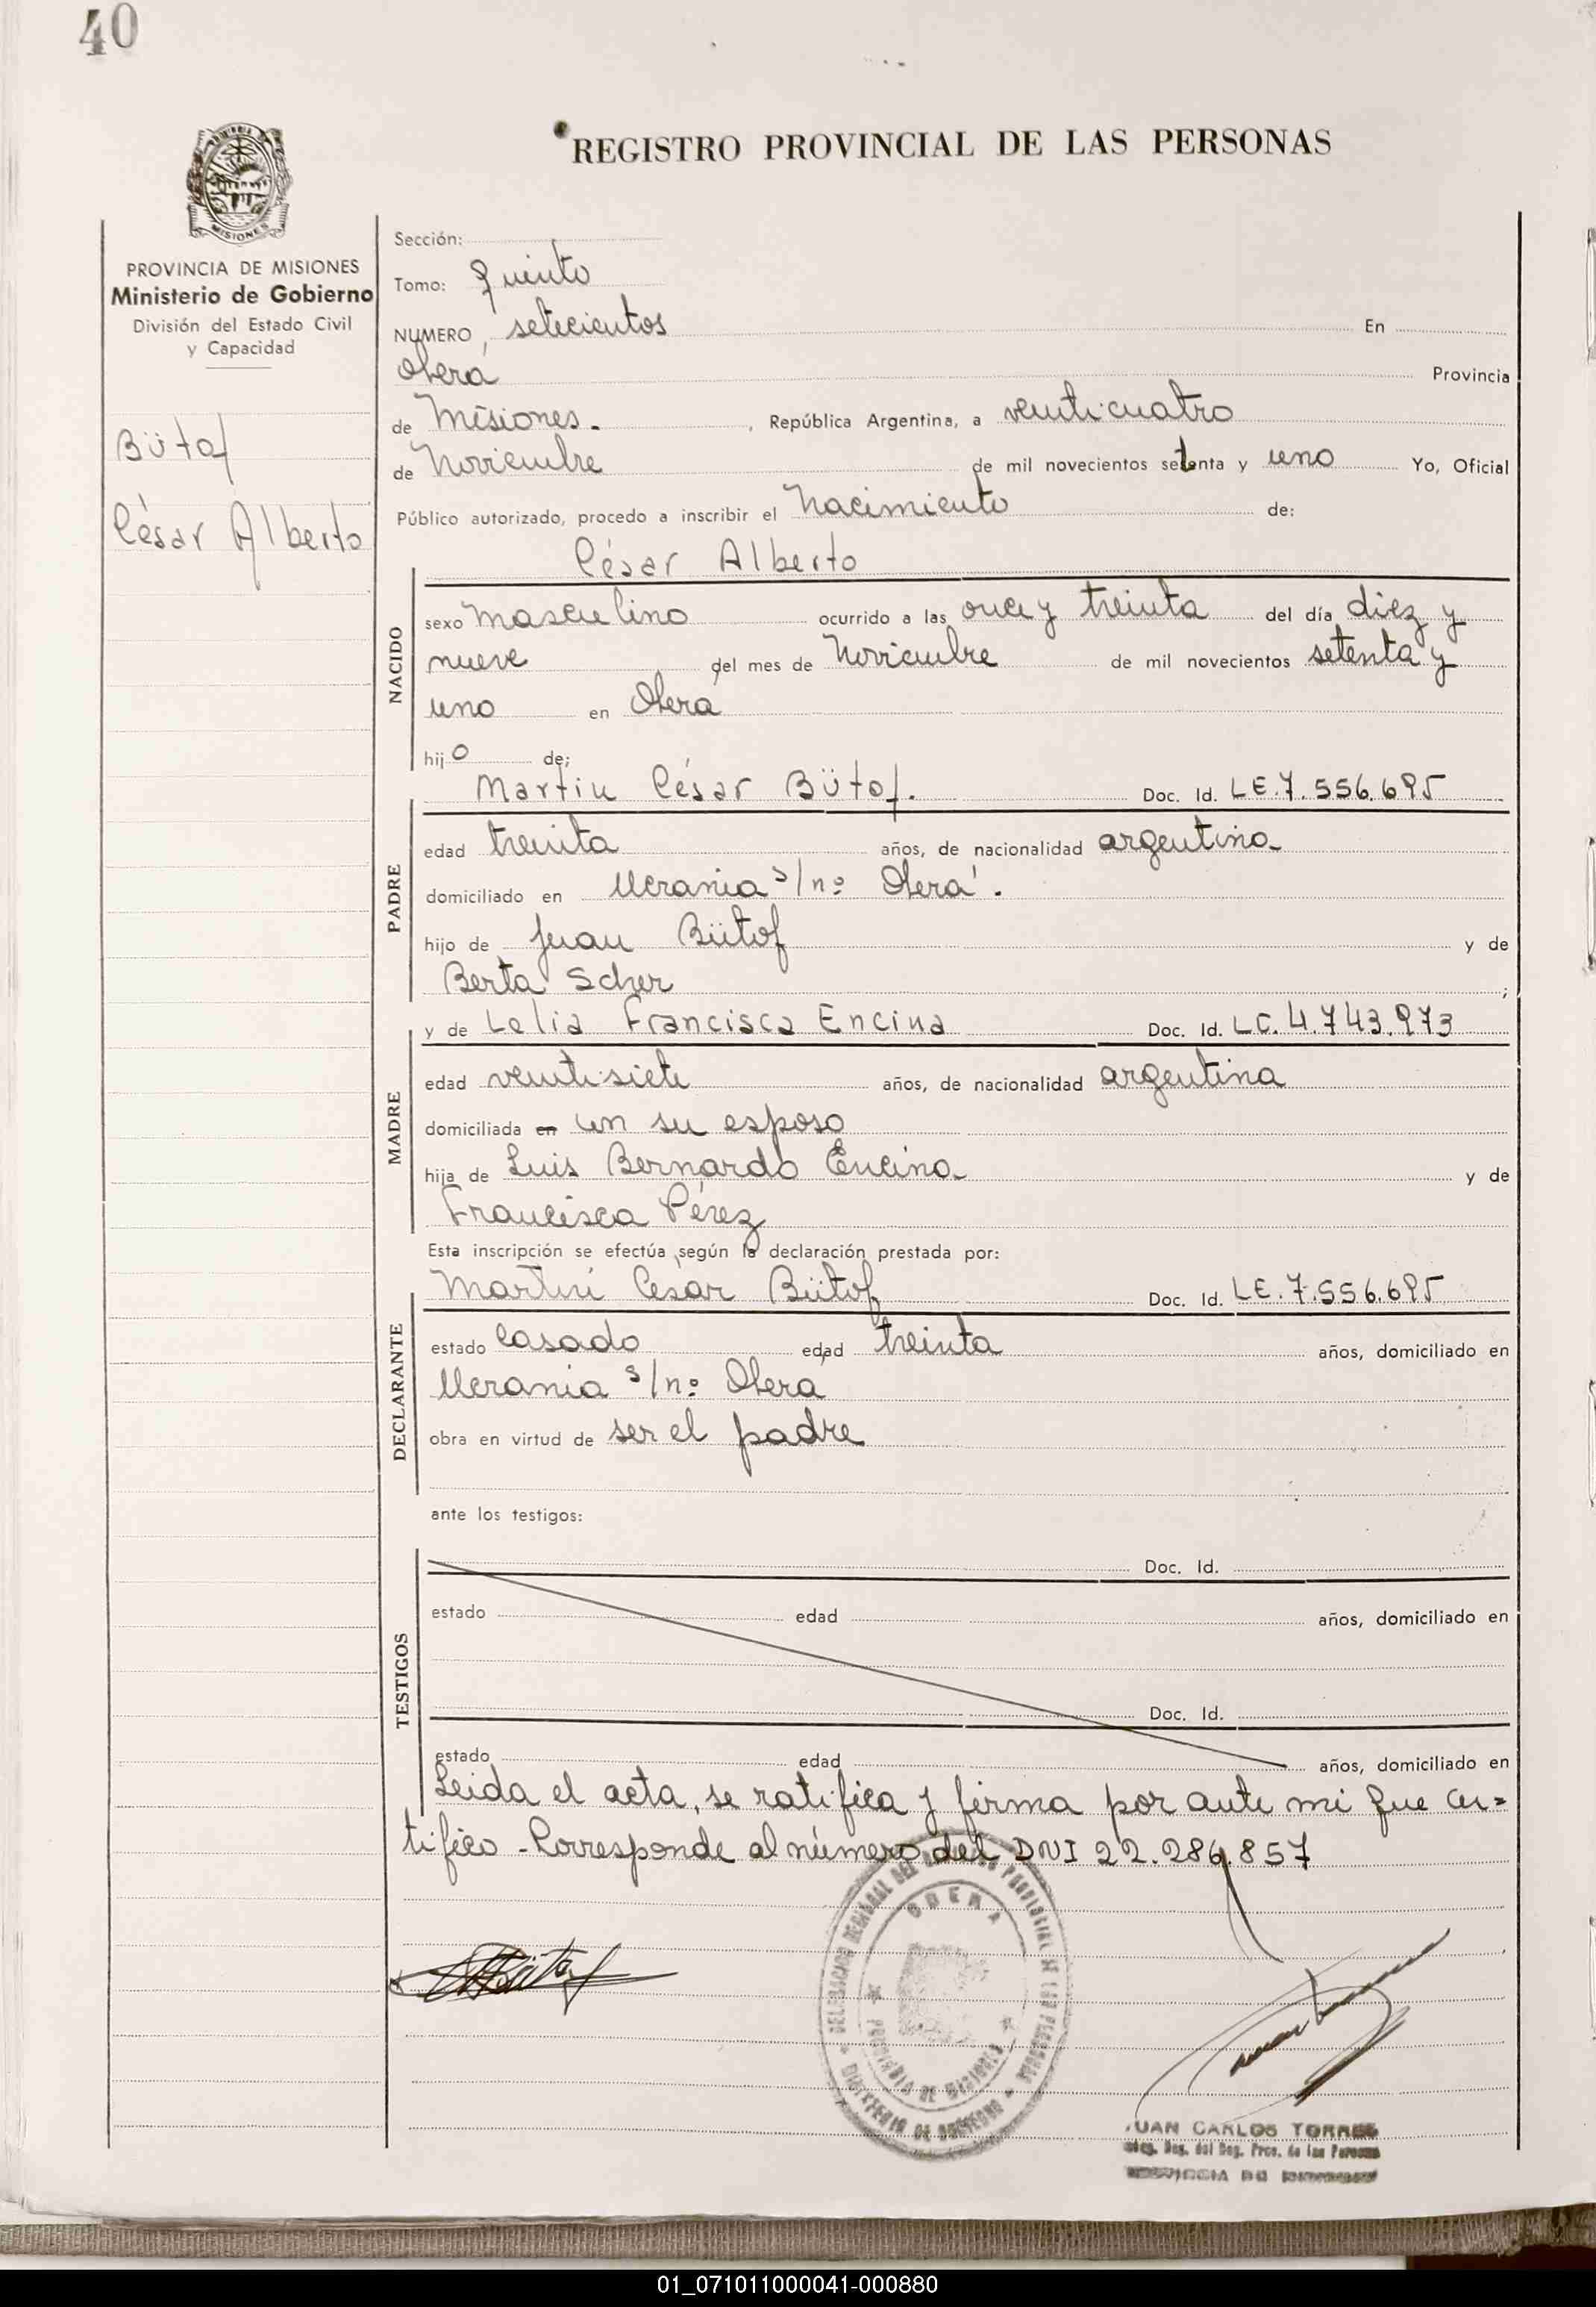 40
REGISTRO PROVINCIAL DE LAS PERSONAS
MISIONES
PROVINCIA DE MISIONES
Ministerio de Gobierno
División del Estado Civil
y Capacidad
Bütof
César Alberto
Sección:
Tomo: Quinto
NUMERO, setecientos En
Oberá Provincia
de Misiones. , República Argentina, a veinticuatro
de Noviembre de mil novecientos setenta y uno Yo, Oficial
Público autorizado, procedo a inscribir el Nacimiento de:
César Alberto
NACIDO
sexo masculino ocurrido a las once y treinta del día diez y
nueve del mes de Noviembre de mil novecientos setenta y
uno en Oberá
hijo de;
Martin César Bütof. Doc. Id. LE.7.556.695
PADRE
edad treinta años, de nacionalidad argentina
domiciliado en Ucrania s/nº Oberá.
hijo de Juan Bütof y de
Berta Scher ;
y de Lelia Francisca Encina Doc. Id. LC.4.743.973
MADRE
edad veintisiete años, de nacionalidad argentina
domiciliada en con su esposo
hija de Luis Bernardo Encina y de
Francisca Pérez
Esta inscripción se efectúa según la declaración prestada por:
Martin César Bütof Doc. Id. LE.7.556.695
DECLARANTE
estado casado edad treinta años, domiciliado en
Ucrania s/nº Oberá
obra en virtud de ser el padre
ante los testigos:
Doc. Id.
TESTIGOS
estado edad años, domiciliado en
Doc. Id.
estado edad años, domiciliado en
Leida el acta, se ratifica y firma por ante mi que cer=
tifico - Corresponde al número del DNI 22.286.857
OBERA
PROVINCIA DE MISIONES
MINISTERIO DE GOBIERNO
JUAN CARLOS TORRES
Reg. del Reg. Prov. de las Personas
01_071011000041-000880